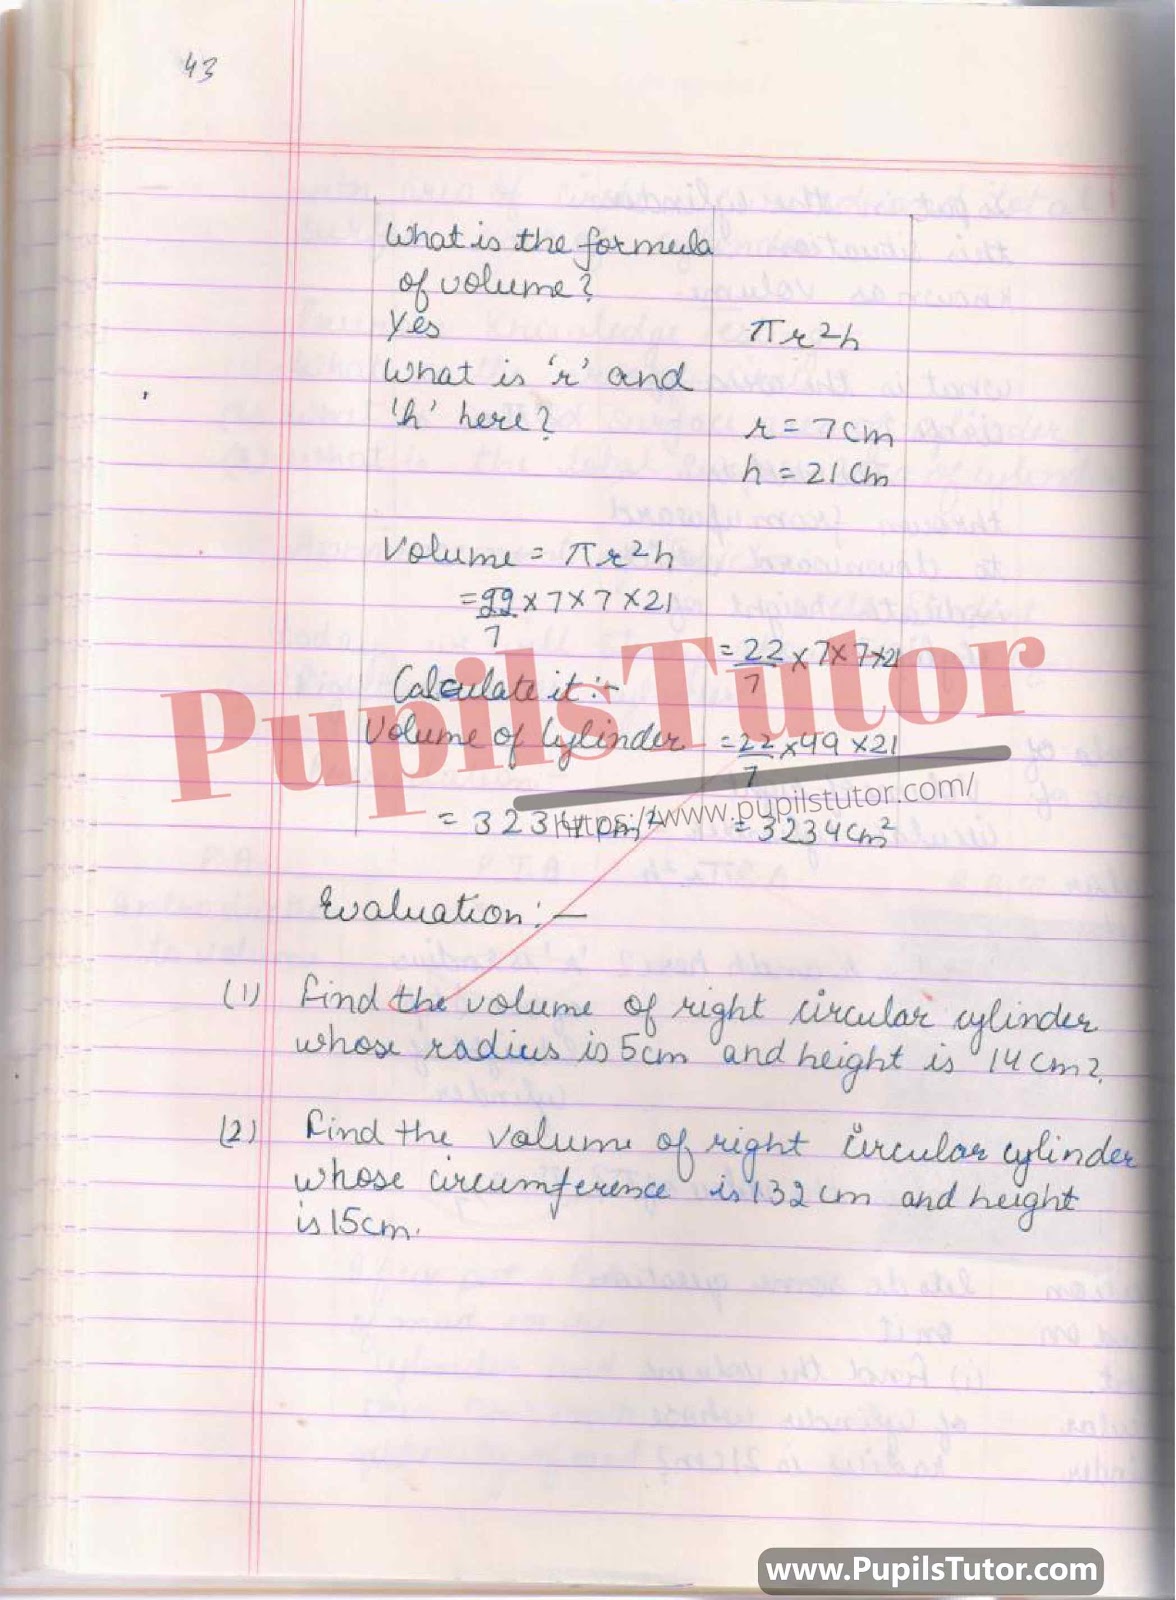 43
What is the formula
of volume?
Yes
πr²h
What is 'r' and
'h' here?
r = 7cm
h = 21cm
Volume = πr²h
= 22/7 × 7 × 7 × 21
= 22/7 × 7 × 7 × 21
Calculate it :-
Volume of Cylinder
= 22/7 × 49 × 21
= 3234 cm²
= 3234cm²
PupilsTutor
https://www.pupilstutor.com/
Evaluation :-
(1) Find the volume of right circular cylinder
whose radius is 5cm and height is 14cm?
(2) Find the volume of right circular cylinder
whose circumference is 132 cm and height
is 15cm.
www.PupilsTutor.com